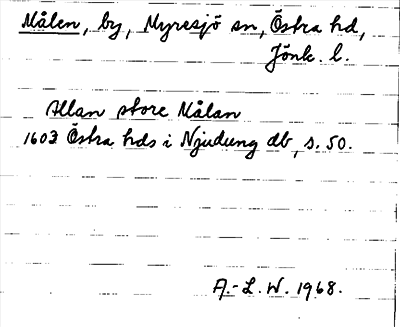 Målen, by, Myresjö sn, Östra hd,
Jönk. l.
Allan store Målan
1603 Östra hds i Njudung db, s. 50.
A.-L. W. 1968.